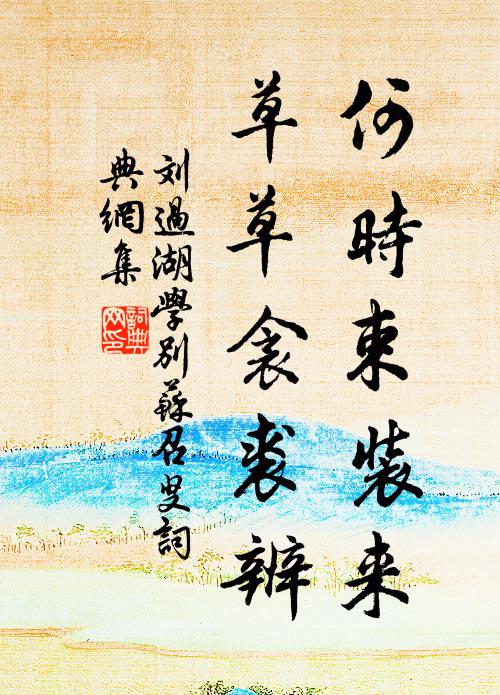 何時束裝来
草草衾裘辦
刘過湖學别蘇召叟詞
典網集
詞典
网印